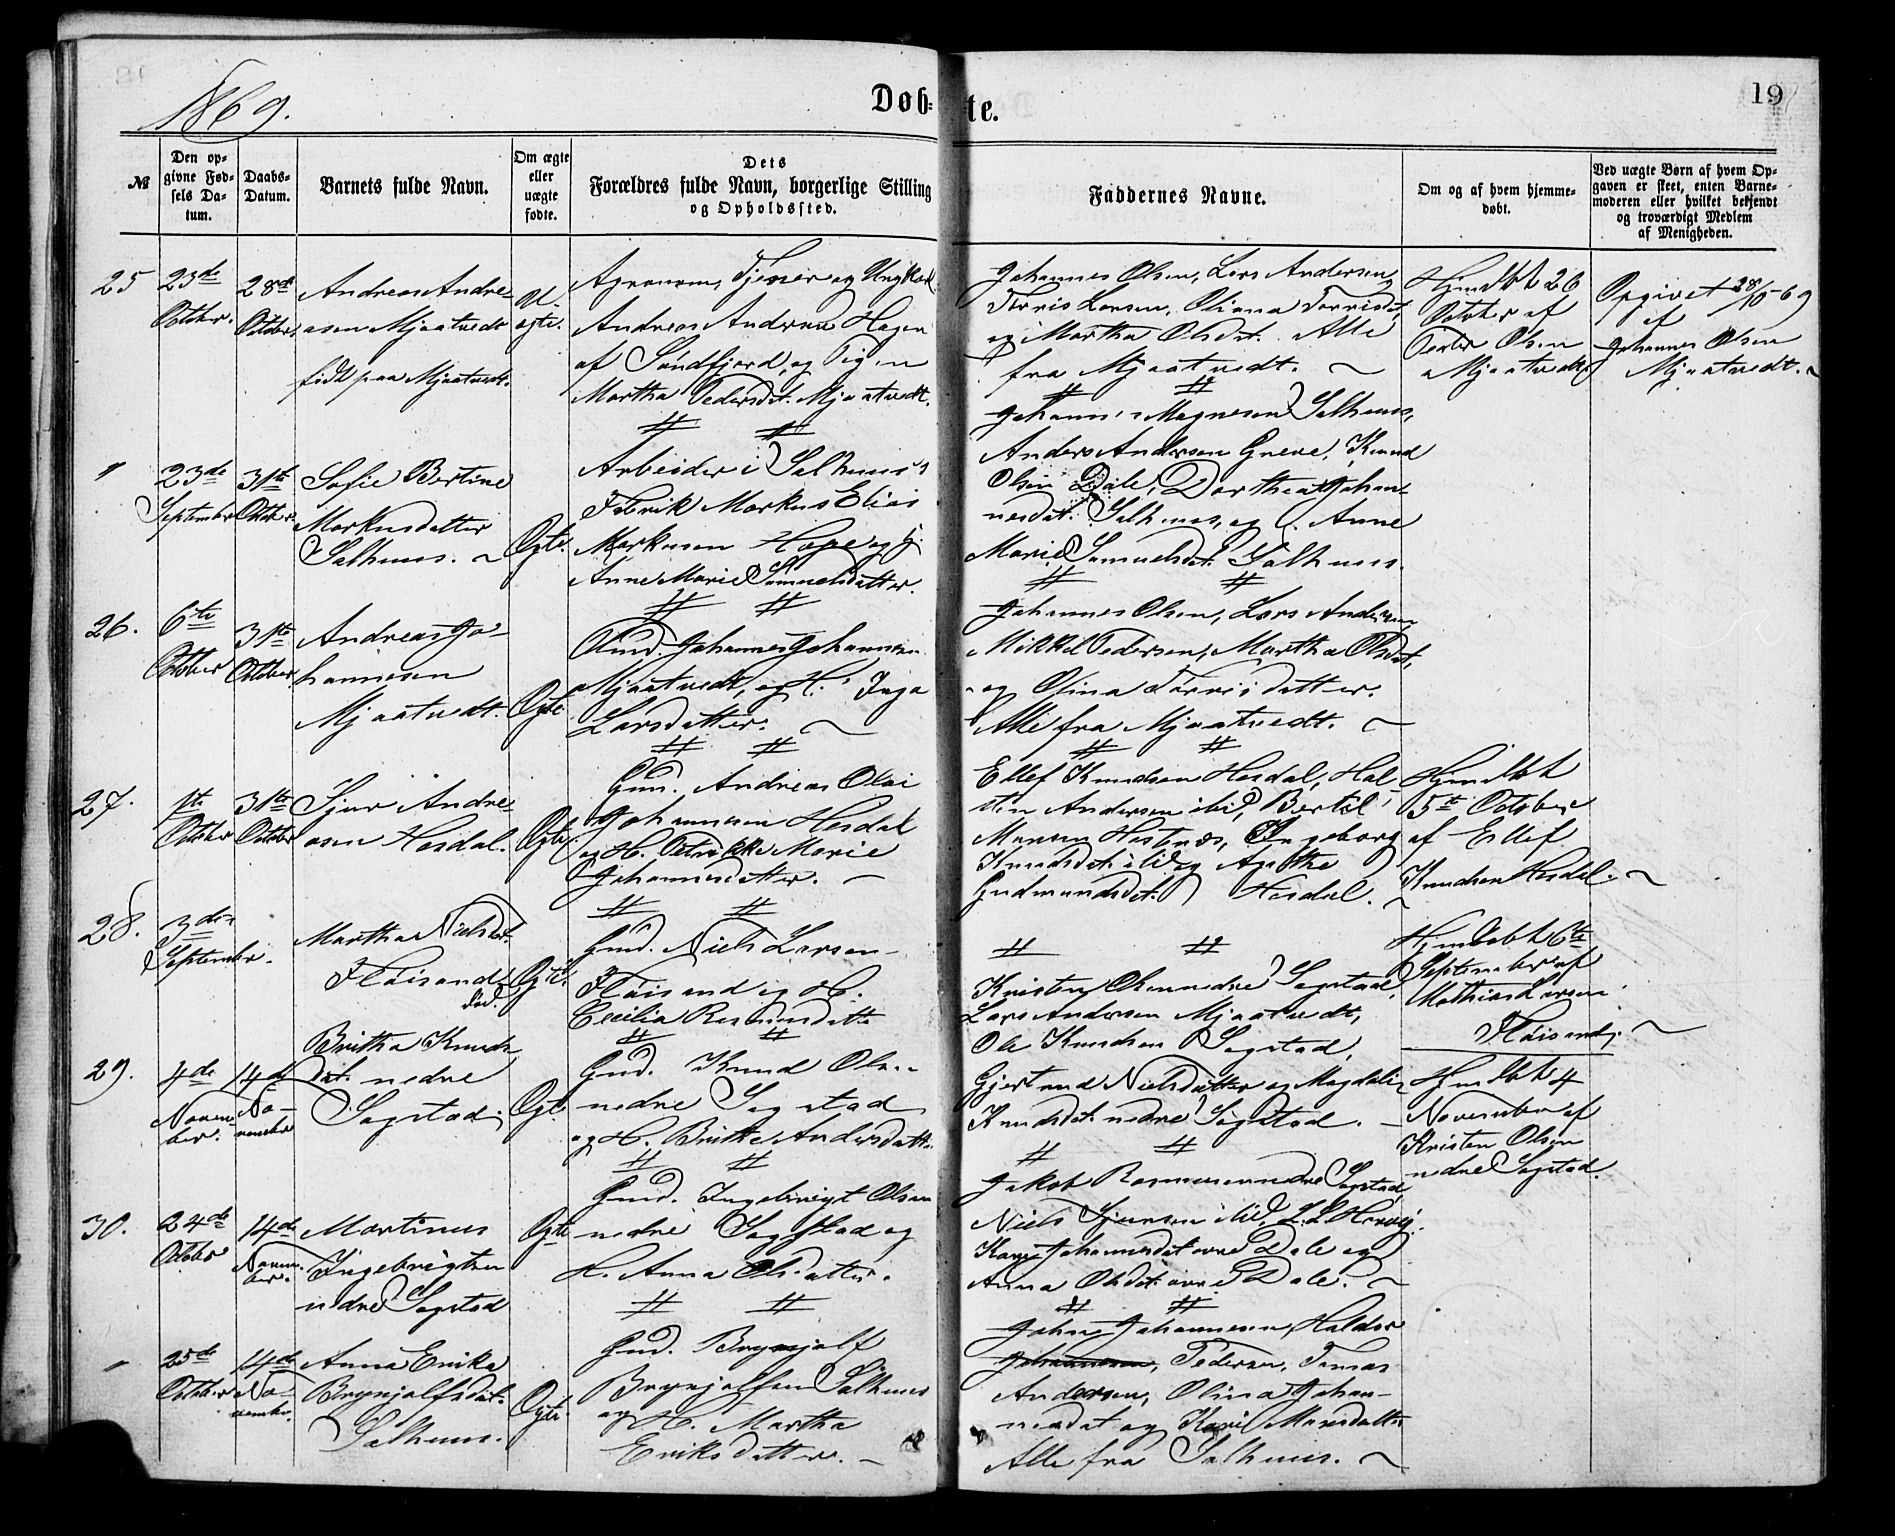 1869.
Døb-
te.
19
№
Den op-
givne Fød-
sels Da-
tum.
Daabs-
Datum.
Barnets fulde Navn.
Om ægte
eller
uægte
fødte.
Dets
Forældres fulde Navn, borgerlige Stilling
og Opholdssted.
Faddernes Navne.
Om og af hvem hjemme-
døbt.
Ved uægte Børn af hvem Op-
gaven er skeet, enten Barne-
moderen eller hvilket bekjendt
og troværdigt Medlem
af Menigheden.
25
23de
October.
28de
October
Andreas Andre-
asen Mjaatvedt
født paa Mjaatvedt.
U-
ægte.
Agronom, Tjener og Ungkarl
Andreas Andersen Hagen
af Søndfjord, og Pigen
Martha Pedersdat. Mjaatvedt.
Johannes Olsen, Lars Andersen,
Tørris Larsen, Oliana Tørrisdat,
og Martha Olsdat. Alle
fra Mjaatvedt.
Hjmdbt 26
October af
Peder Olsen
Mjaatvedt
Opgivet 28/10-69
af
Johannes Olsen
Mjaatvedt.
"
23de
September
31te
October
Sofie Bertine
Markusdatter
Salhuus.
Ægte.
Arbeider i Salhuus's
Fabrik Markus Elias
Markusen Hope og H.
Anne Marie Samuelsdatter.
Johannes Magnesen Salhuus,
Anders Andersen Greve, Knud
Olsen Dale, Dorthea Johan-
nesdat. Salhuus, og Anne
Marie Samuelsdat. Salhuus.
26.
6te
October
31te
October.
Andreas Jo-
hannesen
Mjaatvedt.
Ægte
Gmd. Johannes Johannesen
Mjaatvedt, og H. Inga
Larsdatter.
Johannes Olsen, Lars Andersen,
Mikkel Pedersen, Martha Olsdat,
og Olina Tørrisdatter.
Alle fra Mjaatvedt.
27.
1te
October
31te
October
Sjur Andre-
asen Hesdal.
Ægte.
Gmd. Andreas Olai
Johannesen Hesdal
og H. Petrikke Marie
Johannesdatter.
Ellef Knudsen Hesdal, Hal-
sten Andersen ibid, Bertel
Monsen Hestnæs, Ingeborg
Knudsdat. ibid og Agathe
Gudmundsdat. Hesdal.
Hjmdbt
5te October
af Ellef
Knudsen Hesdal.
28.
3de
September.
Martha Nielsdat.
Fløisand
død.
Ægte.
Gmd. Niels Larsen
Fløisand og H.
Cecilia Rasmusdatt.
Hjmdøbt 6te
September af
Mathias Larsen
Fløisand.
29.
4de
Novem-
ber.
14de
No-
vember
Britha Knuds-
dat. nedre
Sagstad.
Ægte.
Gmd. Knud Olsen
nedre Sagstad
og H. Britha Andersdatt.
Kristen Olsen nedre Sagstad,
Lars Andersen Mjaatvedt,
Ole Knudsen Sagstad,
Gjertrud Nielsdatter og Magdali
Knudsdat. nedre Sagstad.
Hjmdbt 4
November af
Kristen Olsen
nedre Sagstad.
30.
24de
October
14de
Novem-
ber.
Martinus
Ingebrigtsen
nedre Sagstad
Ægte
Gmd. Ingebrigt Olsen
nedre Sagstad og
H. Anna Olsdatter.
Jakob Rasmusen nedre Sagstad,
Niels Sjursen ibid,
Kari Johannesdat øvre Dale og
Anna Olsdat. øvre Dale.
"
25de
October
14de
No-
vember.
Anna Erika
Brynjolfsdat.
Salhuus.
Ægte.
Gmd. Brynjolf
Brynjolfsen Salhuus
og H. Martha
Eriksdatter.
John Johannesen, Haldor
Johannesen, Pedersen, Tomas
Andersen, Olina Johan-
nesdat og Kari Monsdatter
Alle fra Salhuus.